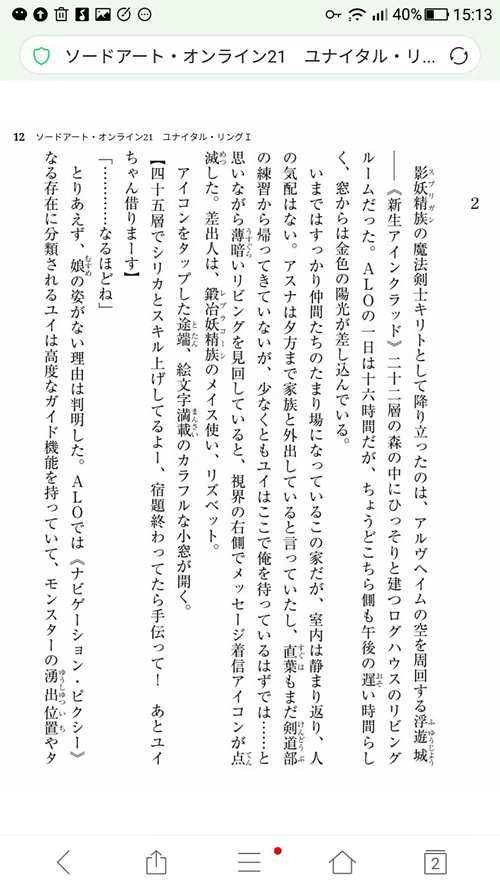 40% 15:13
ソードアート・オンライン21　ユナイタル・リ...
12 ソードアート・オンライン21　ユナイタル・リングⅠ
2
影妖精族の魔法剣士キリトとして降り立ったのは、アルヴヘイムの空を周回する浮遊城
――《新生アインクラッド》二十二層の森の中にひっそりと建つログハウスのリビング
ルームだった。ALOの一日は十六時間だが、ちょうどこちら側も午後の遅い時間らし
く、窓からは金色の陽光が差し込んでいる。
いまではすっかり仲間たちのたまり場になっているこの家だが、室内は静まり返り、人
の気配はない。アスナは夕方まで家族と外出していると言っていたし、直葉もまだ剣道部
の練習から帰ってきていないが、少なくともユイはここで俺を待っているはずでは……と
思いながら薄暗いリビングを見回していると、視界の右側でメッセージ着信アイコンが点
滅した。差出人は、鍛冶妖精族のメイス使い、リズベット。
アイコンをタップした途端、絵文字満載のカラフルな小窓が開く。
【四十五層でシリカとスキル上げしてるよー、宿題終わってたら手伝って！　あとユイ
ちゃん借りまーす】
「…………なるほどね」
とりあえず、娘の姿がない理由は判明した。ALOでは《ナビゲーション・ピクシー》
なる存在に分類されるユイは高度なガイド機能を持っていて、モンスターの湧出位置やタ
2